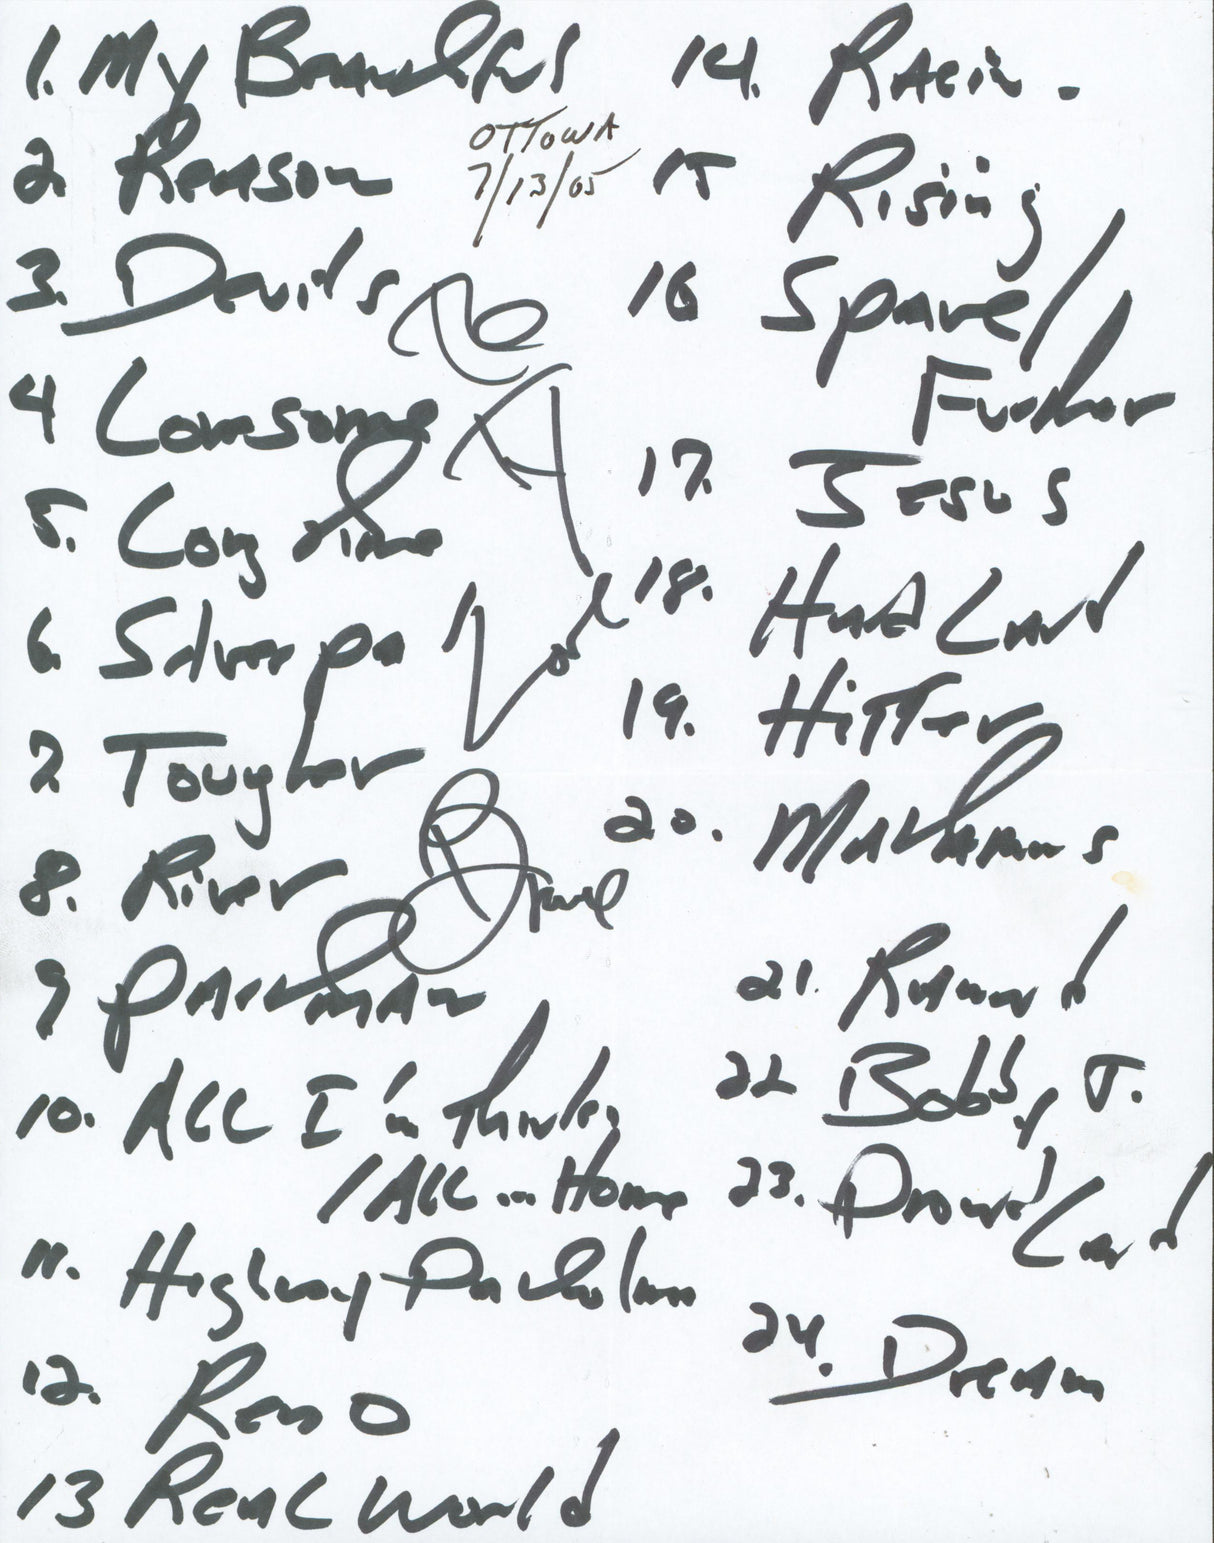 1. My Beautiful
OTTOWA
7/13/05
2. Reason
3. Devils
4 Lonesome
5. Long time
6. Silver pa
7 Tougher
8. River
9 Partman
10. ALL I'm Thinkin
/ALL ... Home
11. Highway Patrolman
12. Reno
13 Real World
14. Racin.
15 Rising
16 Spare/
Further
17. Jesus
18. Hard Land
19. Hitter
20. Matamoros
21. Ramrod
22 Bobby J.
23. Prom'd
Land
24. Dream